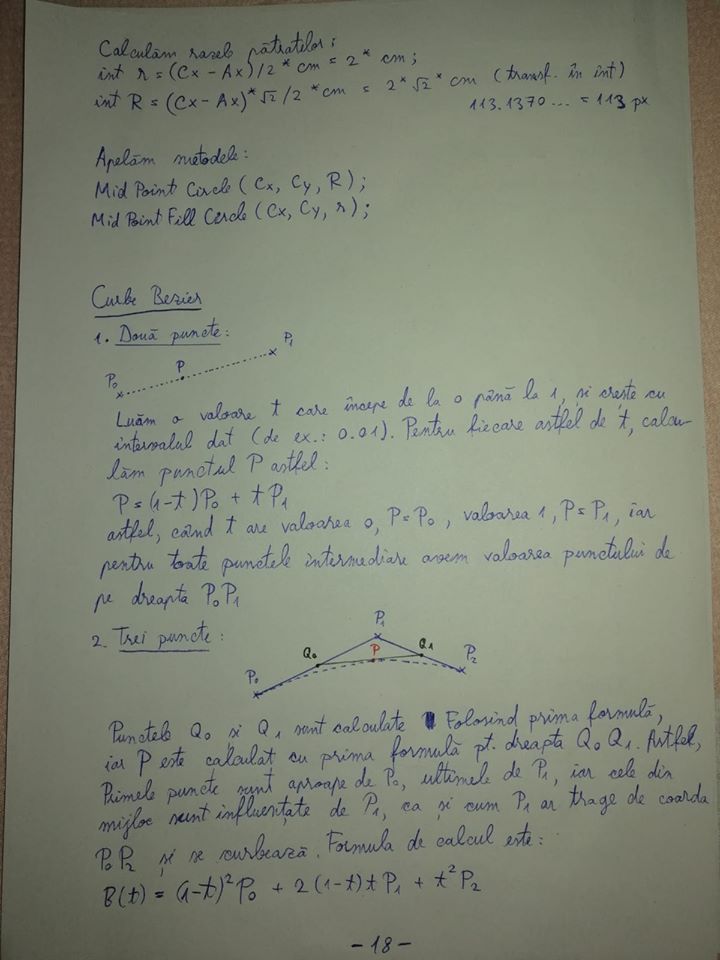 Calculăm razele pătratelor:
int r = (Cx - Ax) / 2 * cm = 2 * cm;
int R = (Cx - Ax) * √2 / 2 * cm = 2 * √2 * cm (transf. în int)
113.1370... = 113 px
Apelăm metodele:
Mid Point Circle (Cx, Cy, R);
Mid Point Fill Cercle (Cx, Cy, r);
Curbe Bezier
1. Două puncte:
P₀ P P₁
Luăm o valoare t care începe de la 0 până la 1, si crește cu
intervalul dat (de ex.: 0.01). Pentru fiecare astfel de t, calcu-
lăm punctul P astfel:
P = (1-t)P₀ + tP₁
astfel, când t are valoarea 0, P=P₀, valoarea 1, P=P₁, iar
pentru toate punctele intermediare avem valoarea punctului de
pe dreapta P₀P₁
2. Trei puncte:
P₀ Q₀ P₁ P Q₁ P₂
Punctele Q₀ si Q₁ sunt calculate Folosind prima formulă,
iar P este calculat cu prima formulă pt. dreapta Q₀Q₁. Astfel,
Primele puncte sunt aproape de P₀, ultimele de P₁, iar cele din
mijloc sunt influențate de P₁, ca și cum P₁ ar trage de coarda
P₀P₂ și se curbează. Formula de calcul este:
B(t) = (1-t)²P₀ + 2(1-t)tP₁ + t²P₂
- 18 -